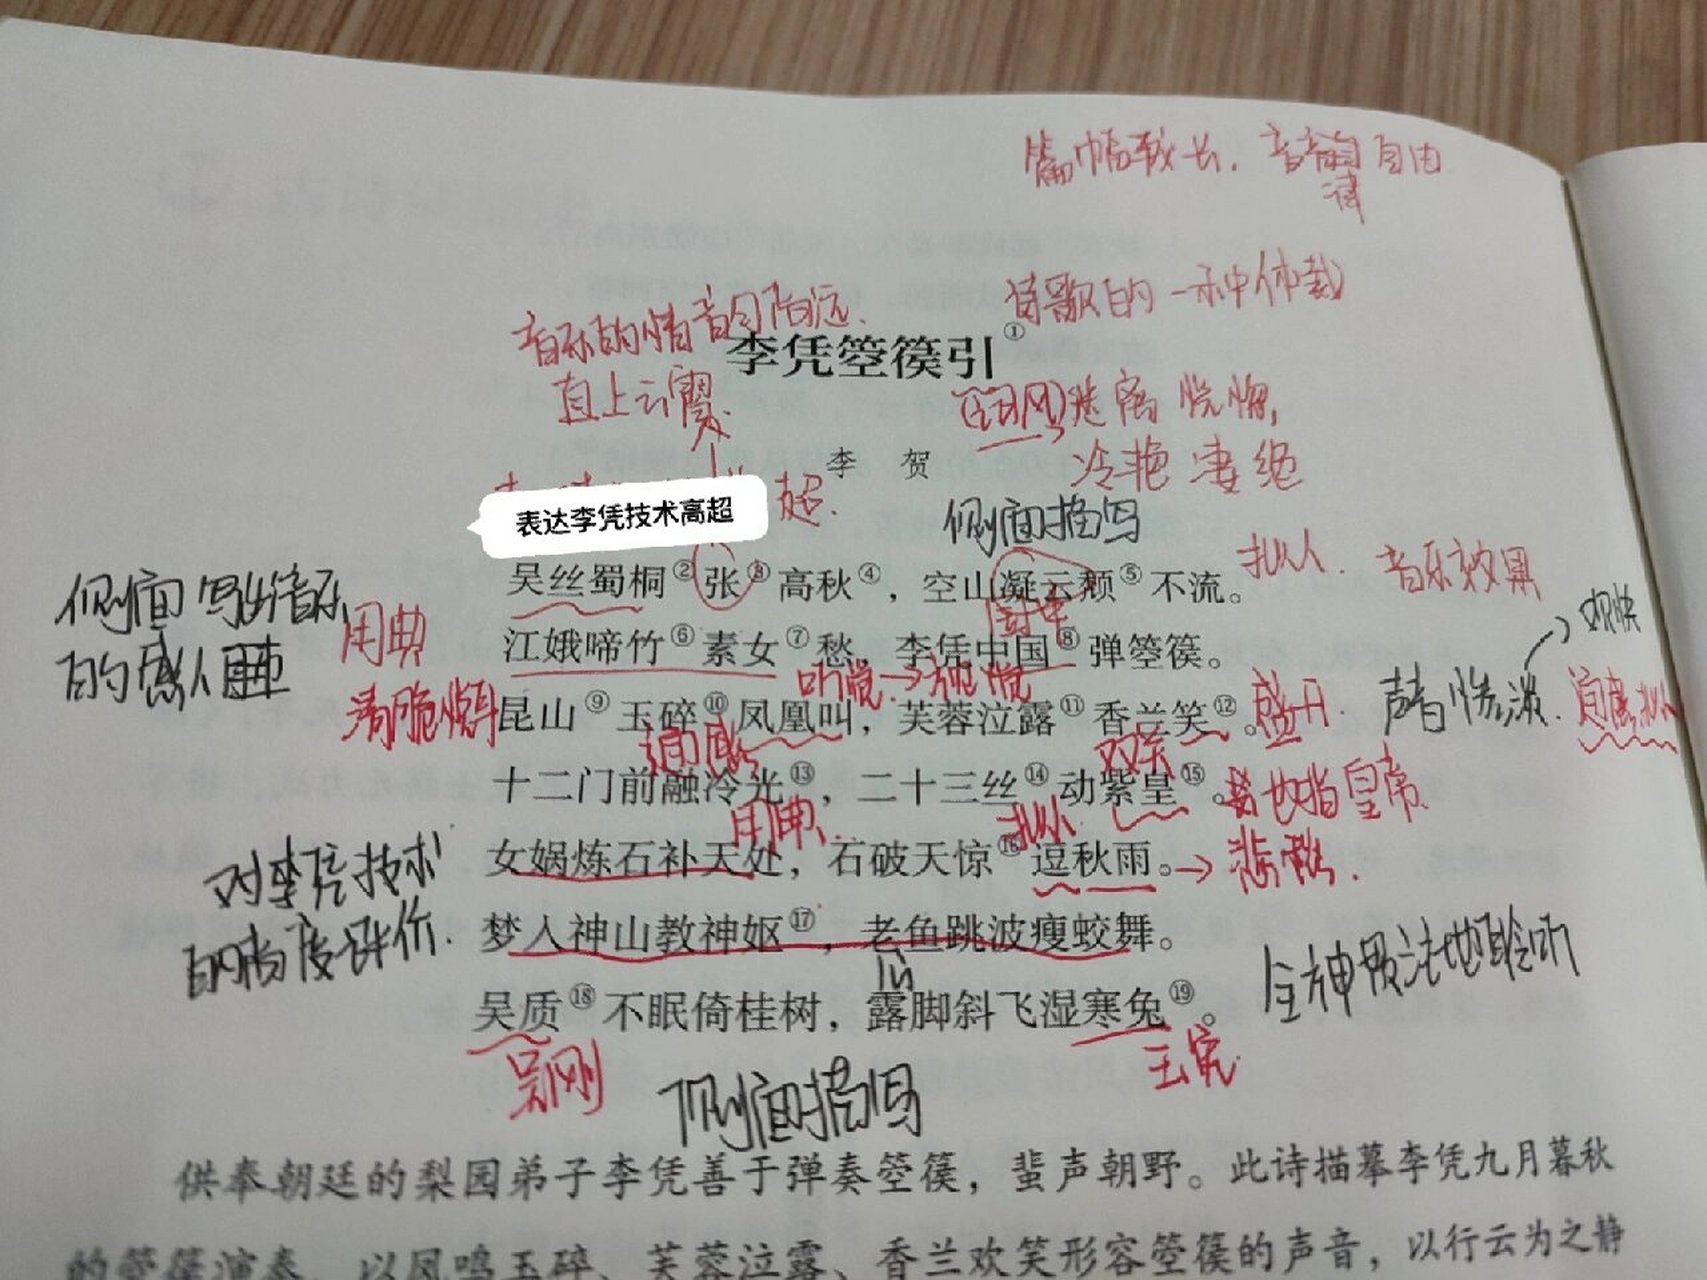 篇幅较长，音韵自由
律
诗歌的一种体裁
李凭箜篌引①
直上云霄
迷离 恍惚，
李 贺
冷艳 凄绝
超．
表达李凭技术高超
侧面描写
吴丝蜀桐②张③高秋④，空山凝云颓⑤不流。
拟人．音乐效果
侧面写出音乐
的感人
用典
江娥啼竹⑥素女⑦愁，李凭中国⑧弹箜篌。
听觉→视觉
清脆
昆山⑨玉碎⑩凤凰叫，芙蓉泣露⑪香兰笑⑫。
盛开．
通感
双关
十二门前融冷光⑬，二十三丝⑭动紫皇⑮。
也指皇帝．
用典
女娲炼石补天处，石破天惊⑯逗秋雨。→
对李凭技术
的高度评价．
梦人神山教神妪⑰，老鱼跳波瘦蛟舞。
全神贯注地聆听
吴质⑱不眠倚桂树，露脚斜飞湿寒兔⑲。
吴刚
玉兔．
侧面描写
供奉朝廷的梨园弟子李凭善于弹奏箜篌，蜚声朝野。此诗描摹李凭九月暮秋
的箜篌演奏，以凤鸣玉碎、芙蓉泣露、香兰欢笑形容箜篌的声音，以行云为之静